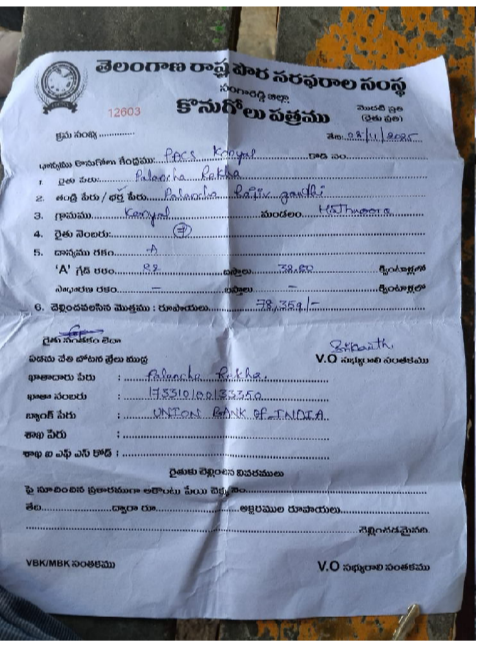 తెలంగాణ రాష్ట్ర పౌర సరఫరాల సంస్థ
సంగారెడ్డి జిల్లా
12603 కొనుగోలు పత్రము మొదటి ప్రతి
(రైతు ప్రతి)
క్రమ సంఖ్య .............. తేది: 08/11/2025
ధాన్యము కొనుగోలు కేంద్రము: PACS Konyal కోడ్ నం.
1. రైతు పేరు: Palancha Rekha
2. తండ్రి పేరు / భర్త పేరు Palancha Rajiv gandhi
3. గ్రామము Konyal మండలం Hathnoora
4. రైతు నెంబరు: 7
5. ధాన్యము రకం A
'A' గ్రేడ్ రకం 82 బస్తాలు 32.80 క్వింటాళ్లలో
సాధారణ రకం - బస్తాలు - క్వింటాళ్లలో
6. చెల్లించవలసిన మొత్తము : రూపాయలు 78,359/-
రైతు సంతకం లేదా Srikanth
ఎడమ చేతి బొటన వ్రేలు ముద్ర V.O సభ్యురాలి సంతకము
ఖాతాదారు పేరు : Palancha Rekha
ఖాతా నంబరు : 173310100133350
బ్యాంక్ పేరు : UNION BANK OF INDIA
శాఖ పేరు :
శాఖ ఐ ఎఫ్ ఎస్ కోడ్ :
రైతుకు చెల్లించిన వివరములు
పై సూచించిన ప్రకారముగా అకౌంటు పేయి చెక్కు నెం.
తేది ద్వారా రూ. అక్షరముల రూపాయలు
చెల్లించడమైనది.
VBK/MBK సంతకము V.O సభ్యురాలి సంతకము